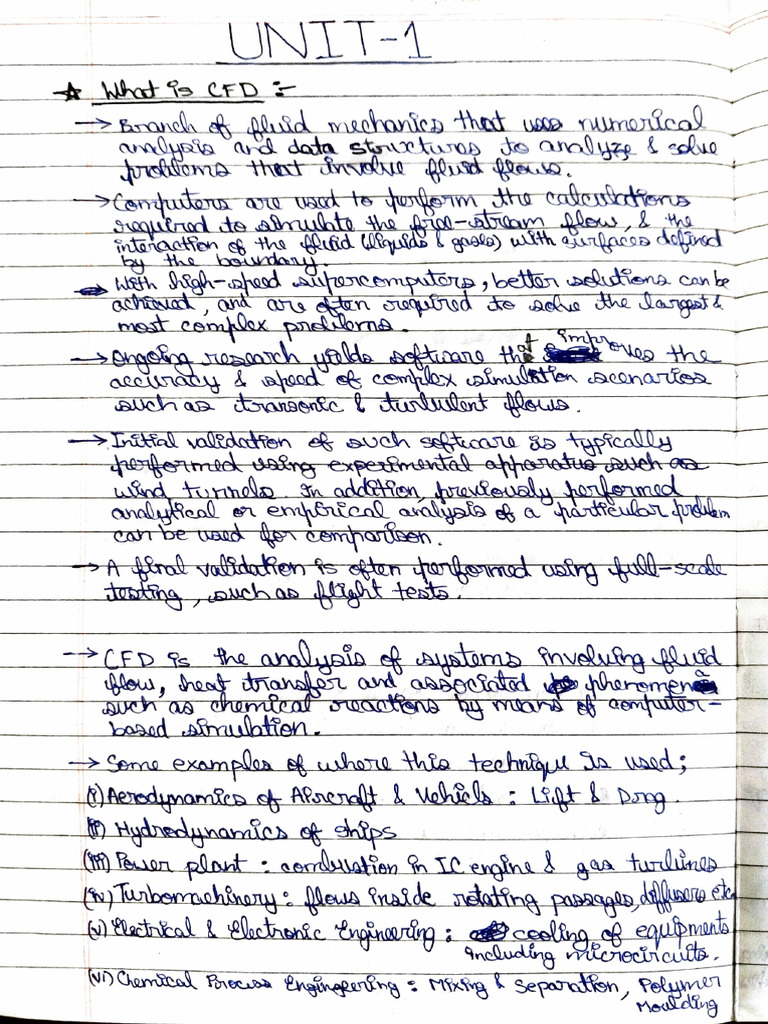 UNIT-1
☆ What is CFD :-
→ Branch of fluid mechanics that uses numerical
analysis and data structures to analyze & solve
problems that involve fluid flows.
→ Computers are used to perform the calculations
required to simulate the free-stream flow, & the
interaction of the fluid (liquids & gases) with surfaces defined
by the boundary.
→ With high-speed supercomputers, better solutions can be
achieved, and are often required to solve the largest &
most complex problems.
→ Ongoing research yields software that improves the
accuracy & speed of complex simulation scenarios
such as transonic & turbulent flows.
→ Initial validation of such software is typically
performed using experimental apparatus such as
wind tunnels. In addition, previously performed
analytical or empirical analysis of a particular problem
can be used for comparison.
→ A final validation is often performed using full-scale
testing, such as flight tests.
→ CFD is the analysis of systems involving fluid
flow, heat transfer and associated phenomena
such as chemical reactions by means of computer-
based simulation.
→ Some examples of where this technique is used;
(i) Aerodynamics of Aircraft & Vehicls : Lift & Drag.
(ii) Hydrodynamics of ships
(iii) Power plant : combustion in IC engine & gas turbines
(iv) Turbomachinery : flows inside rotating passages, diffusers etc.
(v) Electrical & Electronic Engineering : cooling of equipments
including microcircuits.
(vi) Chemical Process Engineering : Mixing & Separation, Polymer
Moulding